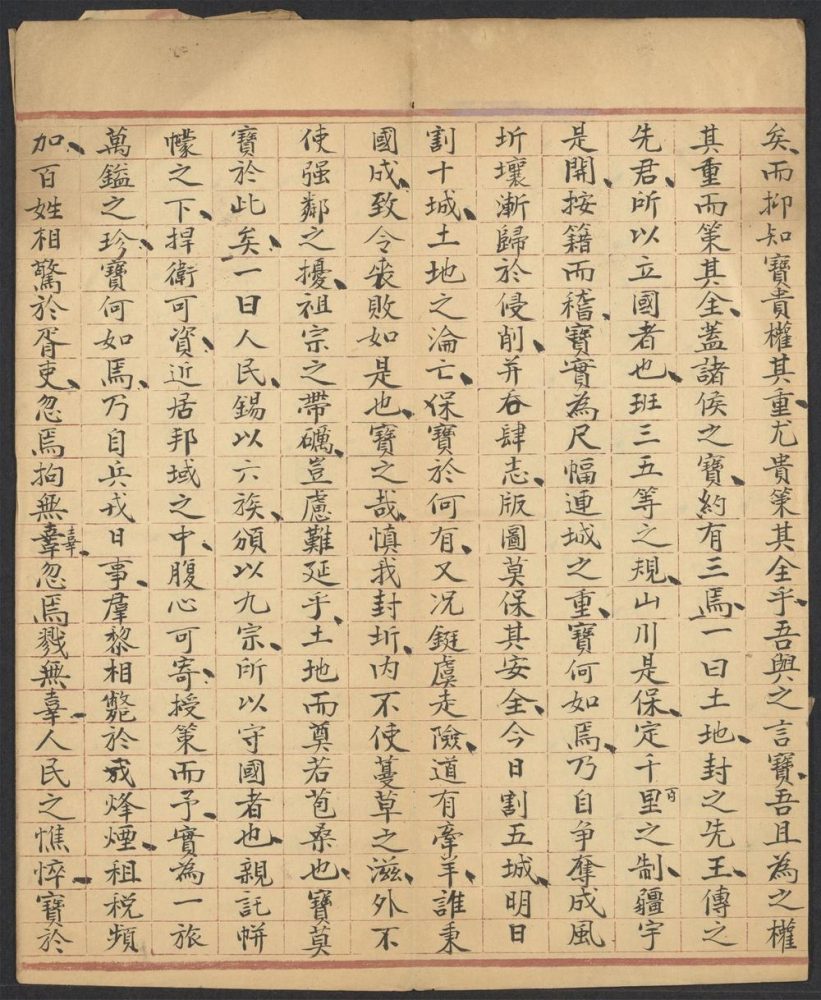 矣、而抑知寶貴權其重、尤貴策其全乎、吾與之言寶、吾且為之權
其重而策其全、蓋諸侯之寶、約有三焉、一曰土地、封之先王、傳之
先君、所以立國者也、班三五等之規、山川是保、定千里之制、疆宇
是開、按籍而稽、寶實為尺幅連城之重、寶何如焉、乃自争奪成風
圻壤漸歸於侵削、并吞肆志、版圖莫保其安全、今日割五城、明日
割十城、土地之淪亡、保寶於何有、又况鋌虞走險、道有牽羊、誰秉
國成、致令喪敗如是也、寶之哉、慎我封圻、内不使蔓草之滋、外不
使强鄰之擾、祖宗之帶礪、豈慮難延乎、土地而奠若苞桑也、寶莫
寶於此矣、一曰人民、錫以六族、頒以九宗、所以守國者也、親託帡
幪之下、捍衛可資、近居邦域之中、腹心可寄、授策而予、實為一旅
萬鎰之珍、寶何如焉、乃自兵戎日事、羣黎相斃於戎烽煙、租税頻
加、百姓相驚於胥吏、忽焉拘無辜、忽焉戮無辜、人民之憔悴、寶於